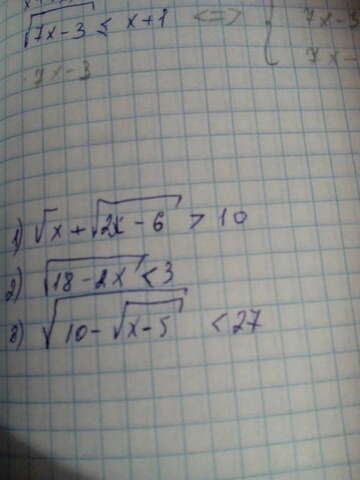 √(7x-3) ≤ x+1 <=> { 7x-3
7x-3 7x-
1) √x + √(2x-6) > 10
2) √(18-2x) < 3
3) √(10-√(x-5)) < 27